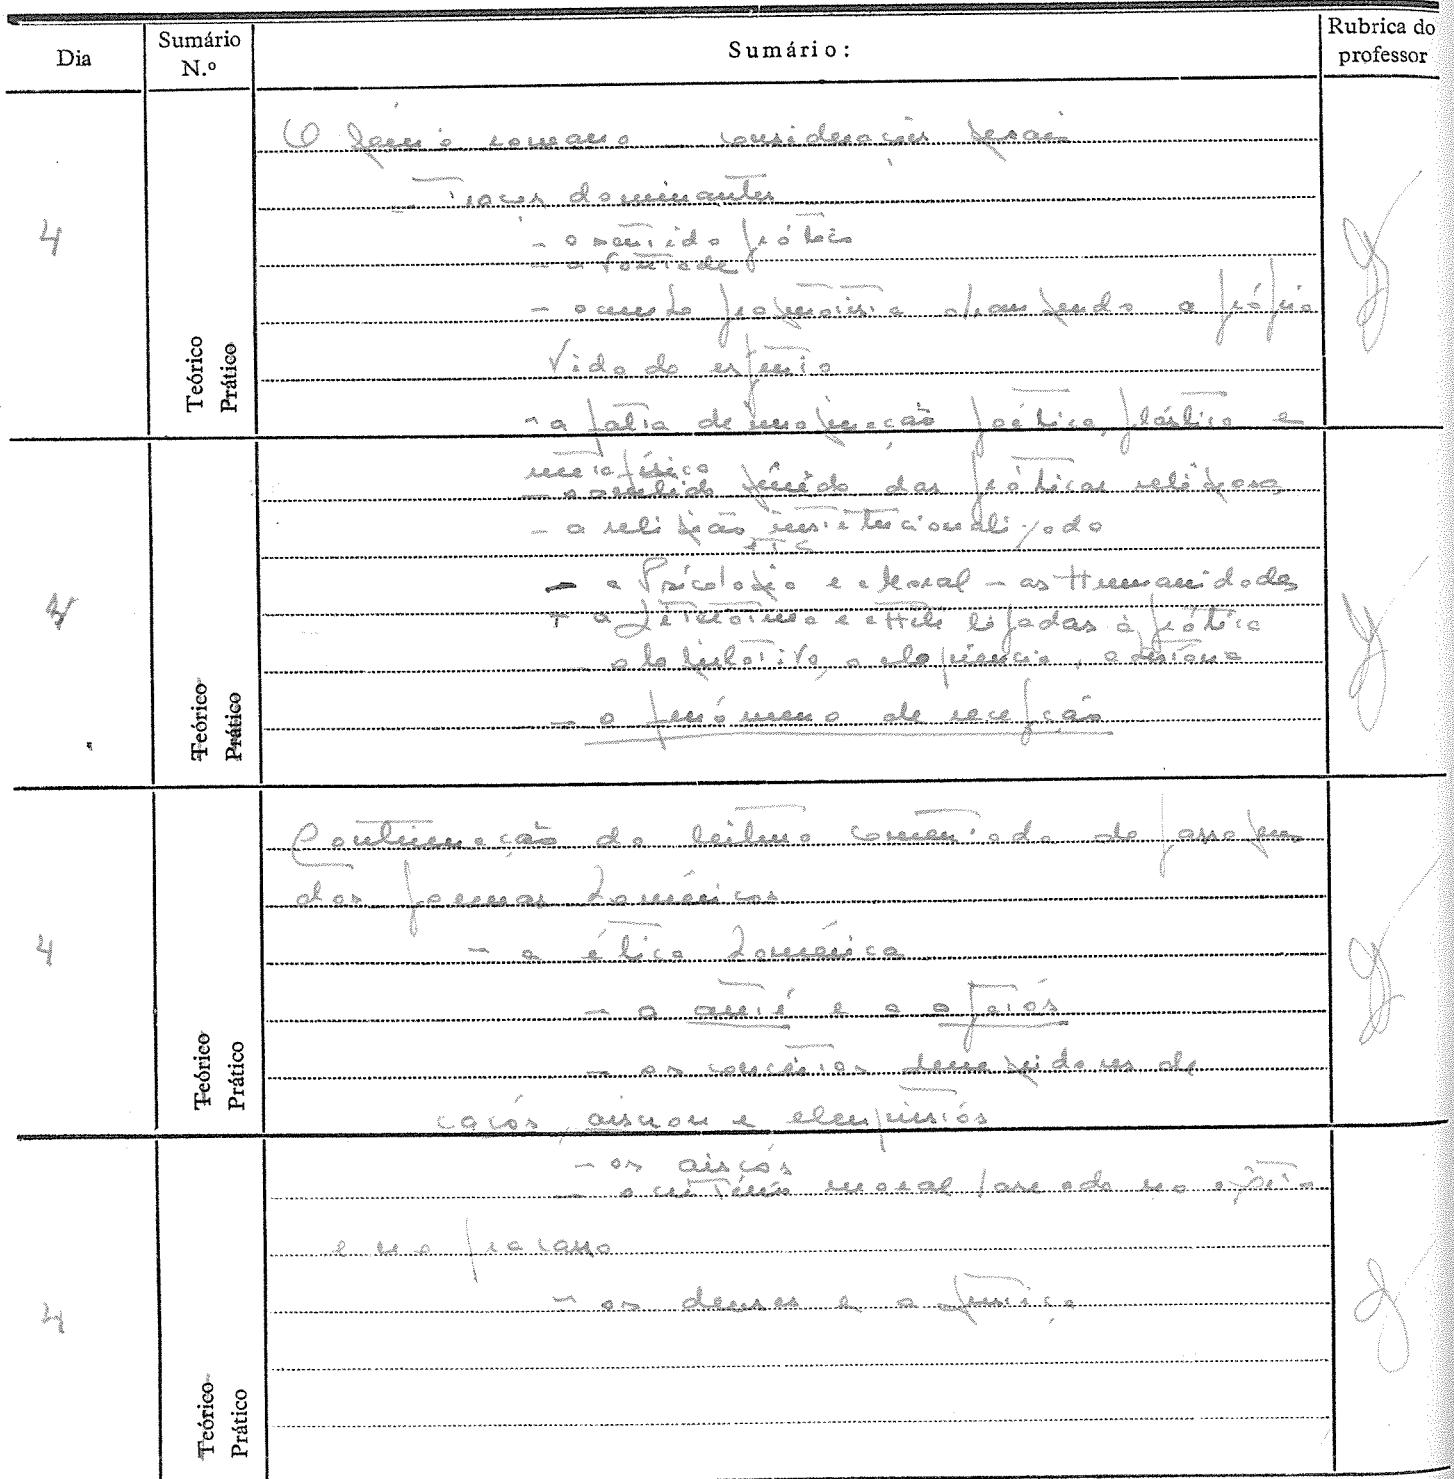 Dia
Sumário N.º
Sumário:
Rubrica do professor
O génio romano considerações gerais
4
Teórico
Prático
- Traços dominantes
- o sentido prático
- a vontade
- o cunho pragmatista abrangendo a própria
vida do espírito
- a falta de imaginação poética, plástica e
metafísica
4
Teórico
Prático
- o sentido rígido das práticas religiosas
- a religião institucionalizada
etc
- a Psicologia e a Moral - as Humanidades
- a Literatura e a Arte ligadas à prática
- a legislativa, a eloquência, a história
- o fenómeno de recepção
4
Teórico
Prático
Continuação da leitura comentada de passagens
dos poemas homéricos
- a ética homérica
- a areté e a agatós
- os conceitos de
cacós, aiscron e
4
Teórico
Prático
- os aiscós
- o critério moral baseado no êxito
e no fracasso
- os deuses e a justiça